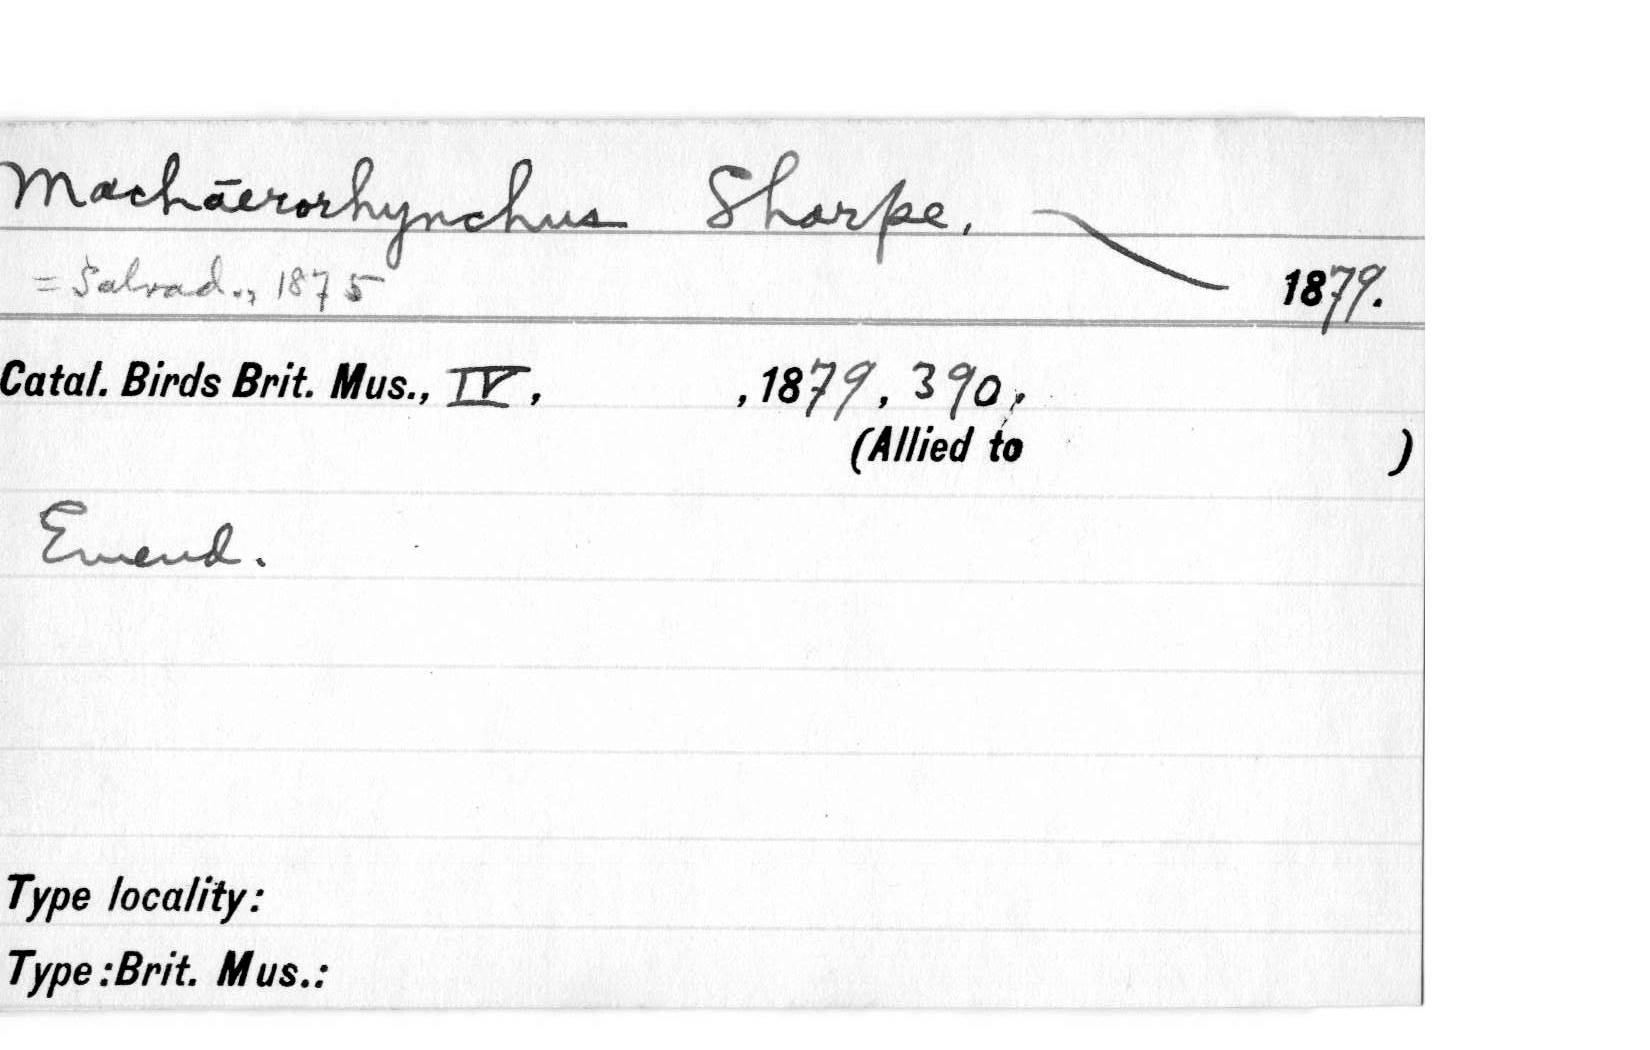 Machāerorhynchus Sharpe,
= Salvad., 1875 1879.
Catal. Birds Brit. Mus., IV, , 1879, 390,
(Allied to )
Emend.
Type locality:
Type: Brit. Mus.: